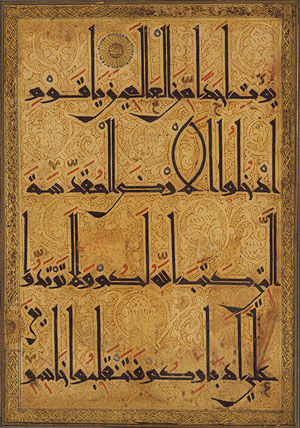 يوت احدا من العلمين يا قوم
ادخلوا الارض المقدسة
التي كتب الله لكم ولا ترتدوا
على ادباركم فتنقلبوا خاسرين